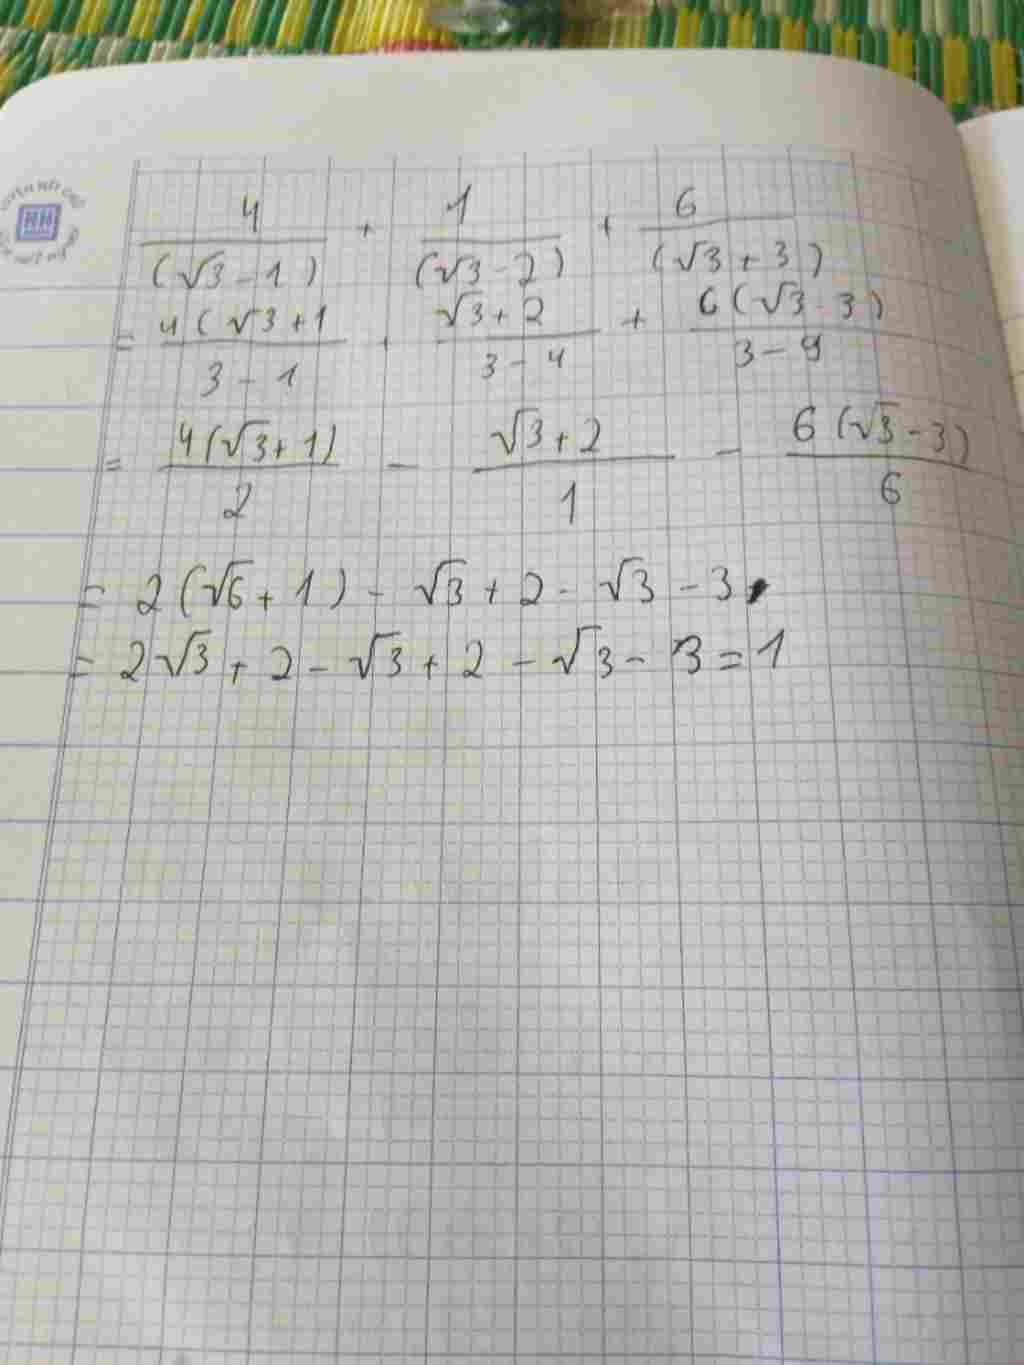 4/(√3 - 1) + 1/(√3 - 2) + 6/(√3 + 3)
= 4(√3 + 1/3 - 1 + √3 + 2/3 - 4 + 6(√3 - 3)/3 - 9
= 4(√3 + 1)/2 - √3 + 2/1 - 6(√3 - 3)/6
= 2(√6 + 1) - √3 + 2 - √3 - 3
= 2√3 + 2 - √3 + 2 - √3 - 3 = 1